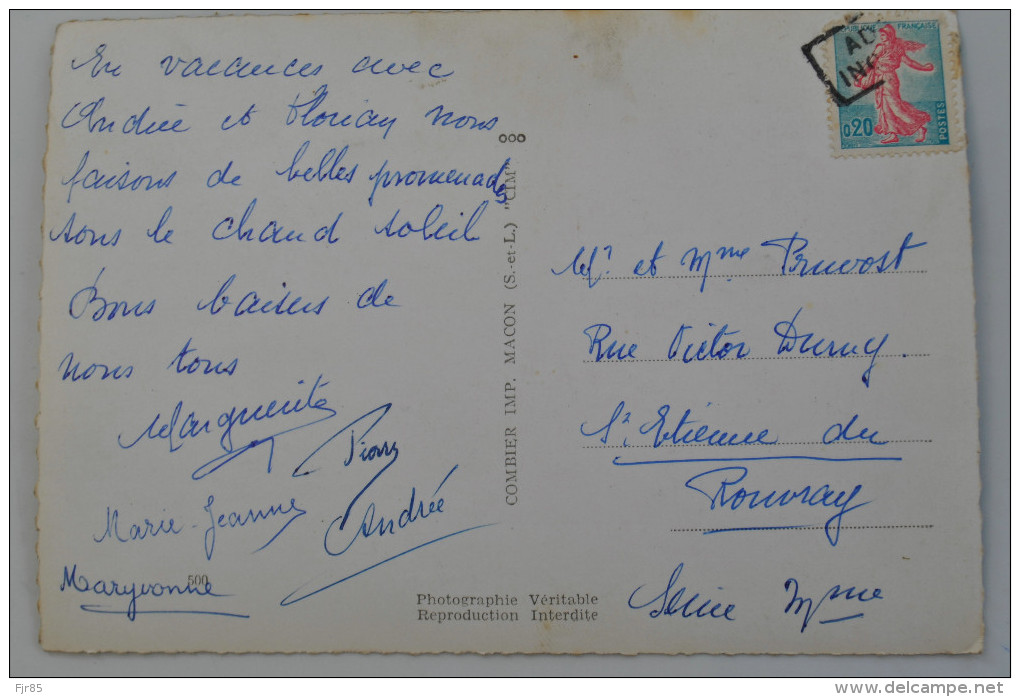 En vacances avec
Andrée et Floriay nous
faisons de belles promenades
sous le chaud soleil
Bons baisers de
nous tous
Marguerite
Marie-Jeanne
Andrée
Maryvonne
500
ooo
COMBIER IMP. MACON (S.-et-L.) "CIM"
Photographie Véritable
Reproduction Interdite
RÉPUBLIQUE FRANÇAISE
0,20
POSTES
Mr et Mme Pruvost
Rue Victor Duruy.
St Etienne du
Rouvray
Seine Mme
Fjr85
www.delcampe.net